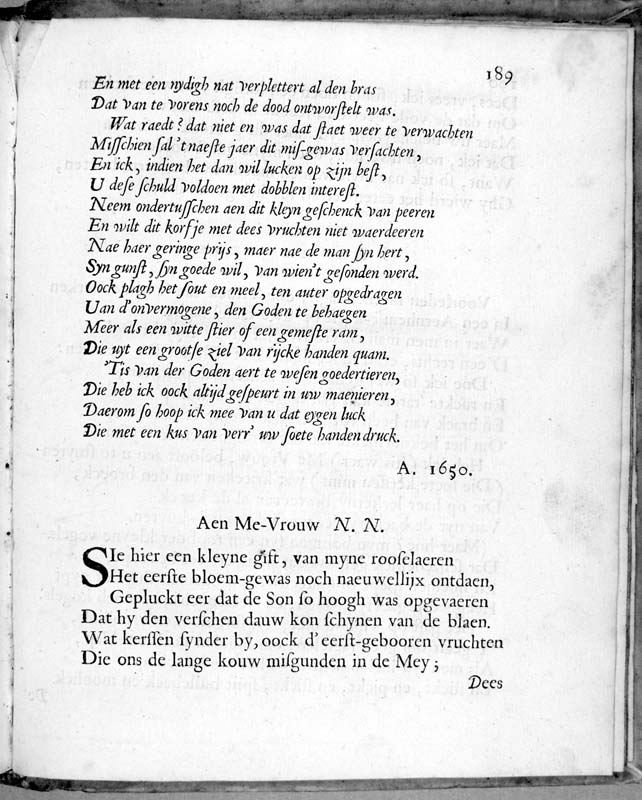 189
En met een nydigh nat verplettert al den bras
Dat van te vorens noch de dood ontworſtelt was.
Wat raedt? dat niet en was dat ſtaet weer te verwachten
Miſſchien ſal 't naeſte jaer dit miſ-gewas verſachten,
En ick, indien het dan wil lucken op zijn beſt,
U deſe ſchuld voldoen met dobblen intereſt.
Neem ondertuſſchen aen dit kleyn geſchenck van peeren
En wilt dit korfje met dees vruchten niet waerdeeren
Nae haer geringe prijs, maer nae de man ſyn hert,
Syn gunſt, ſyn goede wil, van wien't geſonden werd.
Oock plagh het ſout en meel, ten auter opgedragen
Uan d'onvermogene, den Goden te behaegen
Meer als een witte ſtier of een gemeſte ram,
Die uyt een grootſe ziel van rijcke handen quam.
'Tis van der Goden aert te weſen goedertieren,
Die heb ick oock altijd geſpeurt in uw maenieren,
Daerom ſo hoop ick mee van u dat eygen luck
Die met een kus van verr' uw ſoete handen druck.
A. 1650.
Aen Me-Vrouw N. N.
SIe hier een kleyne gift, van myne rooſelaeren
Het eerſte bloem-gewas noch naeuwellijx ontdaen,
Gepluckt eer dat de Son ſo hoogh was opgevaeren
Dat hy den verſchen dauw kon ſchynen van de blaen.
Wat kerſſen ſynder by, oock d'eerſt-gebooren vruchten
Die ons de lange kouw miſgunden in de Mey;
Dees